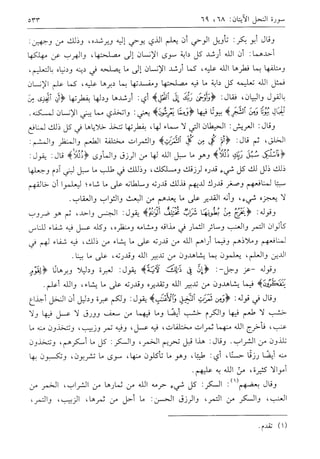 سورة النحل الآيتان: ٦٨، ٦٩ ٥٣٣
وقال أبو بكر: تأويل الوحي أن يعلم الذي يوحي إليه ويرشده، وذلك من وجهين:
أحدهما: أن الله أرشد كل دابة سوى الإنسان إلى مصلحتها، والهرب عن مهلكها
ومتلفها بما فطرها الله عليه، كما أرشد الإنسان إلى ما يصلحه في دينه ودنياه بالتعليم،
فمثل الله تعليمه كل دابة ما فيه مصلحتها ومفسدتها بما دبرها عليه، كما علم الإنسان
بالقول والبيان، فقال: ﴿وَأَوْحَىٰ رَبُّكَ إِلَى النَّحْلِ﴾ أي: أرشدها ودلها بفطرتها ﴿أَنِ اتَّخِذِي مِنَ
الْجِبَالِ بُيُوتًا وَمِنَ الشَّجَرِ﴾ بيوتًا فيها ﴿وَمِمَّا يَعْرِشُونَ﴾ يعني: واتخذي مما يبني الإنسان لمسكنه.
وقال: العريش: الحيطان التي لا سماء لها، بفطرتها تتخذ خلاياها في كل ذلك لمنافع
الخلق، ثم قال: ﴿ثُمَّ كُلِي مِن كُلِّ الثَّمَرَاتِ﴾ والثمرات مختلفة الطعم والمنظر والمشم:
﴿فَاسْلُكِي سُبُلَ رَبِّكِ ذُلُلًا﴾ وهو ما سبل الله لها من الرزق والمأوى ﴿ذُلُلًا﴾ قال: يقول:
ذلك ذلل لك كل شيء قدره لرزقك ومسلكك، وذللك في طلب ما سبل لبني آدم وجعلها
سببًا لمنافعهم وصغر قدرك لديهم فذلك قدرته وسلطانه على ما شاء؛ ليعلموا أن خالقهم
لا يعجزه شيء، وأنه القدير على ما يعدهم من البعث والثواب والعقاب.
وقوله: ﴿يَخْرُجُ مِنْ بُطُونِهَا شَرَابٌ مُخْتَلِفٌ أَلْوَانُهُ﴾ يقول: الجنس واحد، ثم هو ضروب
كألوان التمر والعنب وسائر الثمار في مذاقه ومشامه ومنظره، وكله عسل فيه شفاء للناس
لمنافعهم وملاذهم وفيما أراهم الله من قدرته على ما يشاء من ذلك، فيه شفاء لهم في
الدين والعلم، يعلمون بما يشاهدون من تدبير الله وقدرته، على ما بينا.
وقوله -عز وجل-: ﴿إِنَّ فِي ذَٰلِكَ لَآيَةً﴾ يقول: لعبرة ودليلا وبرهانًا ﴿لِقَوْمٍ
يَتَفَكَّرُونَ﴾ فيما يشاهدون من تدبير الله وتقديره وقدرته على ما يشاء، والله أعلم.
وقال في قوله: ﴿وَمِن ثَمَرَاتِ النَّخِيلِ وَالْأَعْنَابِ﴾ يقول: ولكم عبرة ودليل أن النخل أجذاع
خشب لا طعم فيها والكرم خشب أيضًا وما فيهما من سعف وورق لا عسل فيها ولا
عنب، فأخرج الله منهما ثمرات مختلفات، فيه عسل، وفيه تمر وزبيب، وتتخذون منه ما
تلذون من الشراب. وقال: هذا قبل تحريم الخمر، والسكر: كل ما أسكرهم، وتتخذون
منه أيضًا رزقًا حسنًا، أي: طيبًا، وهو ما تأكلون منها، سوى ما تشربون، وتكسبون بها
أموالا كثيرة، مَنَّ الله به عليهم.
وقال بعضهم(١): السكر: كل شيء حرمه الله من ثمارها من الشراب، الخمر من
العنب، والسكر من التمر، والرزق الحسن: ما أحل من ثمرها، الزبيب، والتمر،
(١) تقدم.